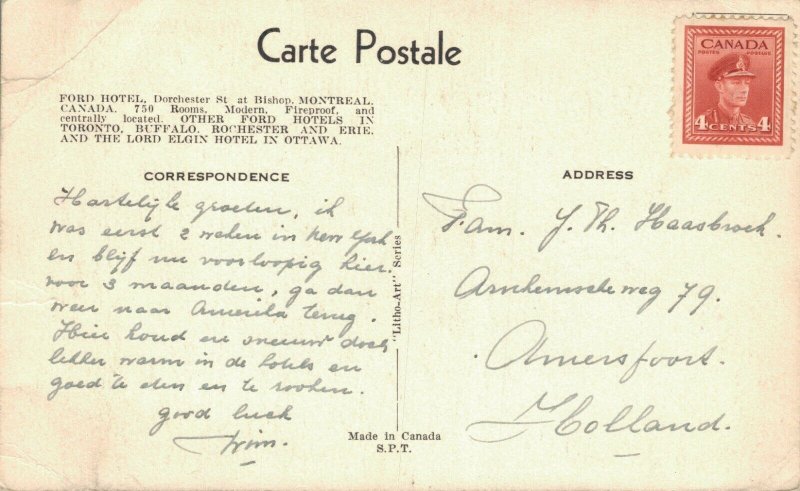 Carte Postale
CANADA
POSTES POSTAGE
4 CENTS 4
FORD HOTEL, Dorchester St at Bishop, MONTREAL,
CANADA. 750 Rooms, Modern, Fireproof, and
centrally located. OTHER FORD HOTELS IN
TORONTO, BUFFALO, ROCHESTER AND ERIE,
AND THE LORD ELGIN HOTEL IN OTTAWA.
CORRESPONDENCE
Hartelijke groeten, ik
was eerst 2 weken in New York
en blijf nu voorloopig hier.
voor 3 maanden, ga dan
weer naar Amerika terug.
Hier koud en sneeuw doch
lekker warm in de hotels en
goed te eten en te rooken.
good luck
Wim.
"Litho-Art" Series
Made in Canada
S.P.T.
ADDRESS
Fam. J. Th. Haasbroek.
Arnhemscheweg 79.
Amersfoort.
Holland.